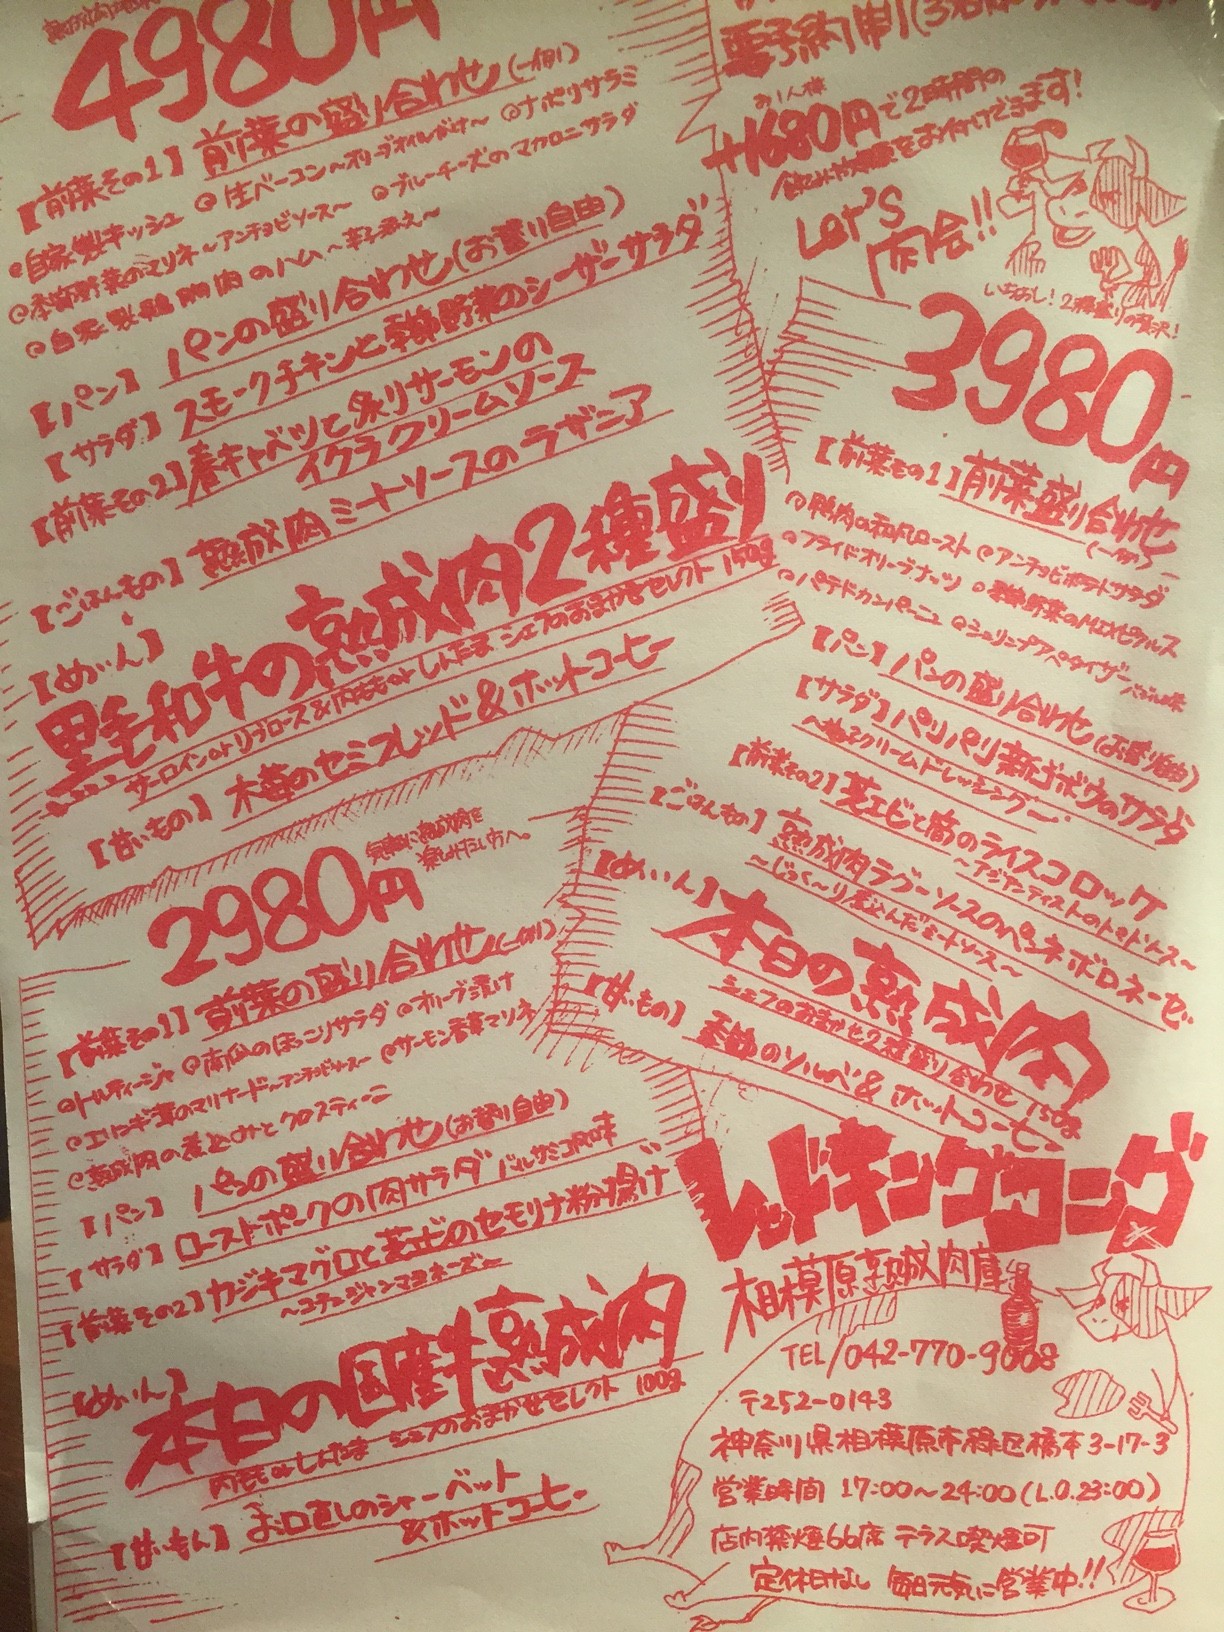 4980円
【前菜その1】前菜の盛り合わせ(一例)
@自家製キッシュ @生ベーコン〜オリーブオイルがけ〜 @ナポリサラミ
@季節野菜のマリネ〜アンチョビソース〜 @ブルーチーズのマカロニサラダ
@自家製鴨胸肉のハム〜辛子添え〜
【パン】パンの盛り合わせ(お替り自由)
【サラダ】スモークチキンと季節野菜のシーザーサラダ
【前菜その2】春キャベツと炙りサーモンの
イクラクリームソース
【ごはんもの】熟成肉ミートソースのラザニア
【めぃん】
黒毛和牛の熟成肉2種盛り
サーロインorリブロース&内ももorしんたま シェフのおまかせセレクト 150g
【甘いもの】木苺のセミフレッド&ホットコーヒー
2980円
気軽に熟成肉を
楽しみたい方へ
【前菜その1】前菜の盛り合わせ(一例)
@トルティージャ @南瓜のほっこりサラダ @オリーブ漬け
@エリンギ茸のマリナード〜アンチョビソース〜 @サーモン香草マリネ
@熟成肉の煮込みとクロスティーニ
【パン】パンの盛り合わせ(お替り自由)
【サラダ】ローストポークの肉サラダ バルサミコ風味
【前菜その2】カジキマグロと芝エビのセモリナ粉揚げ
〜コチュジャンマヨネーズ〜
【めぃん】
本日の国産牛熟成肉
内ももorしんたま シェフのおまかせセレクト 100g
【甘いもん】お口直しのシャーベット
&ホットコーヒー
要予約制
お1人様
+1680円で2時間の
飲み放題をお付けできます!
LeT's
肉会!!
いちおし!2種盛りの贅沢!
3980円
【前菜その1】前菜盛り合わせ
(一例)
@鴨肉の和風ロースト @アンチョビポテトサラダ
@フライドオリーブナッツ @季節野菜のMIXピクルス
@パテドカンパーニュ @シュリンプアペタイザー バジル味
【パン】パンの盛り合わせ(お替り自由)
【サラダ】パリパリ新ゴボウのサラダ
クリームドレッシング〜
【前菜その2】芝エビと筍のライスコロッケ
〜アジアンテイストのトマトソース〜
【ごはんもの】熟成肉ラグーソースのペンネボロネーゼ
〜じっく〜り煮込んだミートソース〜
【めぃん】本日の熟成肉
シェフのおまかせ2種盛り合わせ 150g
【甘いもの】季節のソルベ&ホットコーヒー
レッドキングコング
相模原熟成肉庫
TEL/042-770-9008
〒252-0143
神奈川県相模原市緑区橋本3-17-3
営業時間 17:00〜24:00(L.O.23:00)
店内禁煙66席 テラス喫煙可
定休日なし 毎日元気に営業中!!